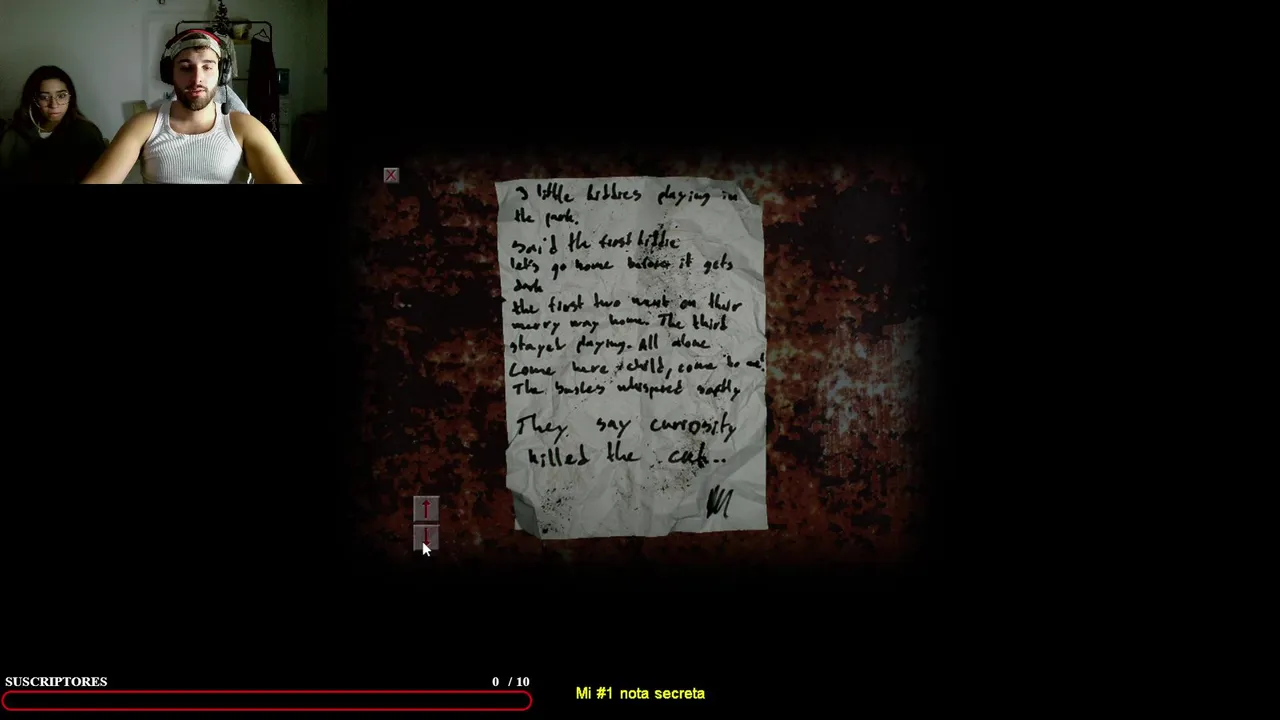 X
3 little kiddies playing in
the park.
Said the first kiddie
let's go home before it gets
dark
the first two went on their
merry way home. The third
stayed playing. All alone
Come here child, come to me!
The bushes whispered softly
They say curiosity
killed the cat...
SUSCRIPTORES 0 / 10
Mi #1 nota secreta